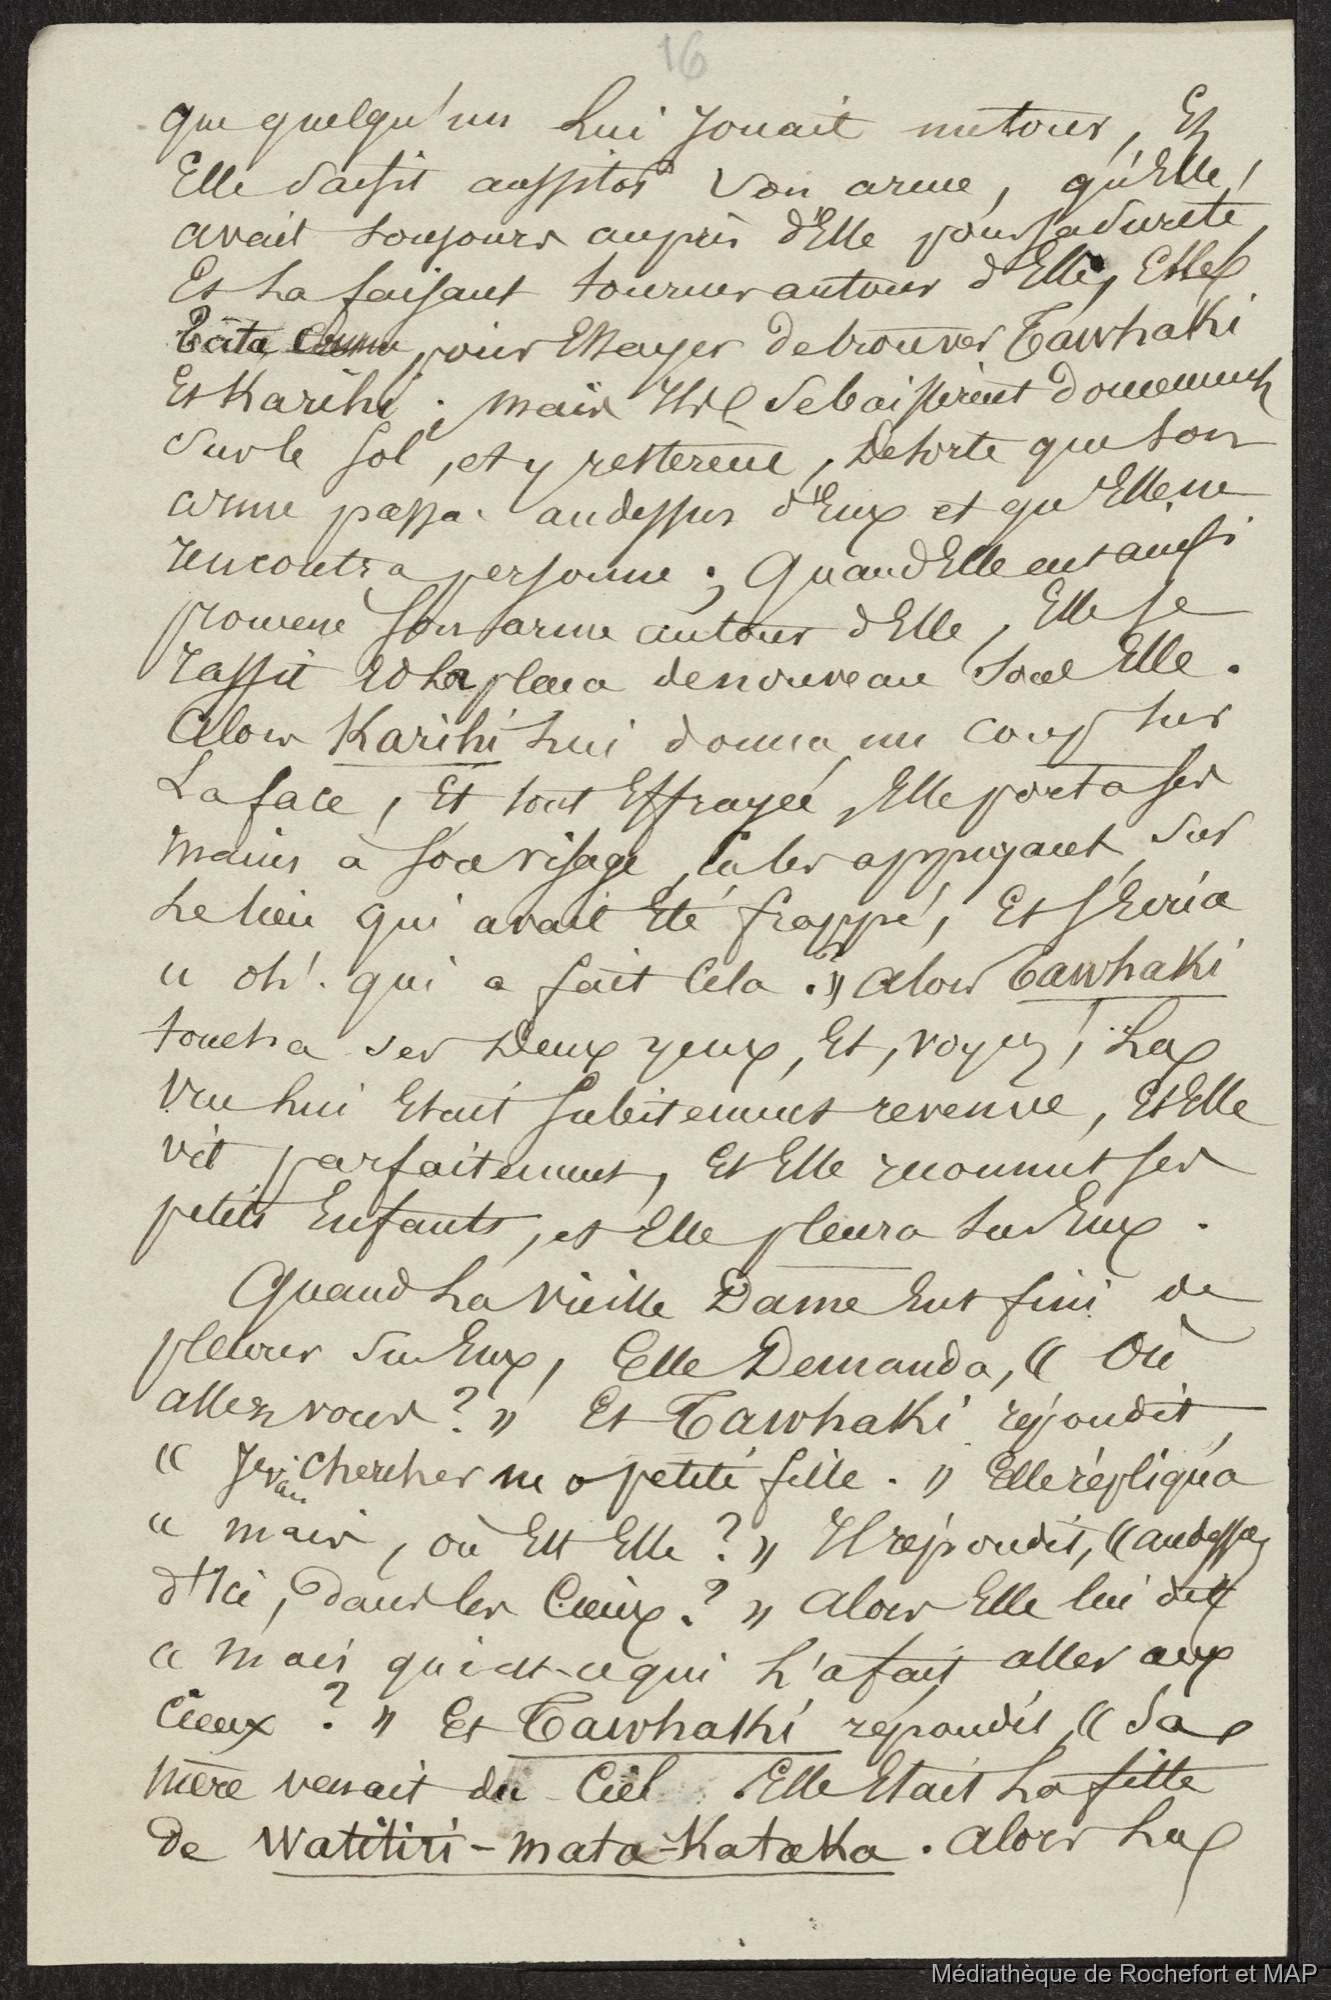 16
que quelqu'un Lui Jouait untour, Et
Elle Saisit aussitôt Son arme, qu'Elle
avait toujours auprès d'Elle pour sa Sureté,
Et La faisant tourner autour d'Elle, Elle
tâta pour Essayer de trouver Tawhaki
Et Karihi; mais Ils Sebaissèrent Doucement
Surle sol, et y restèrent, De sorte que Son
arme passa audessus d'Eux et qu'Elle ne
rencontra personne; Quand Elle eut ainsi
promené son arme autour d'Elle, Elle se
rassit et La plaça de nouveau Sous Elle.
Alors Karihi Lui donna un Coup Sur
La face, Et tout Effrayée, Elle porta ses
mains à son visage, en les appuyant Sur
Le lieu qui avait Eté frappé, Et s'Ecria
" oh! qui a fait Cela. " alors Tawhaki
toucha Ses Deux yeux, Et, voyez! La
vue Lui Etait subitement revenue, Et Elle
vit parfaitement, Et Elle reconnut ses
petits Enfants, et Elle pleura Sur Eux.
Quand La Vieille Dame Eut fini de
pleurer Sur Eux, Elle Demanda, " Où
allez vous? " Et Tawhaki répondit,
" Je vais chercher ma petite fille. " Elle répliqua
" mais, où Est Elle? " Il répondit, " audessus
d'Ici, dans les Cieux? " Alors Elle lui dit
" Mais qui est-ce qui L'a fait aller aux
Cieux? " Et Tawhaki répondit " Sa
mère venait du Ciel. Elle Etait La fille
De Watitiri-mata-Kataka. Alors La
Médiathèque de Rochefort et MAP